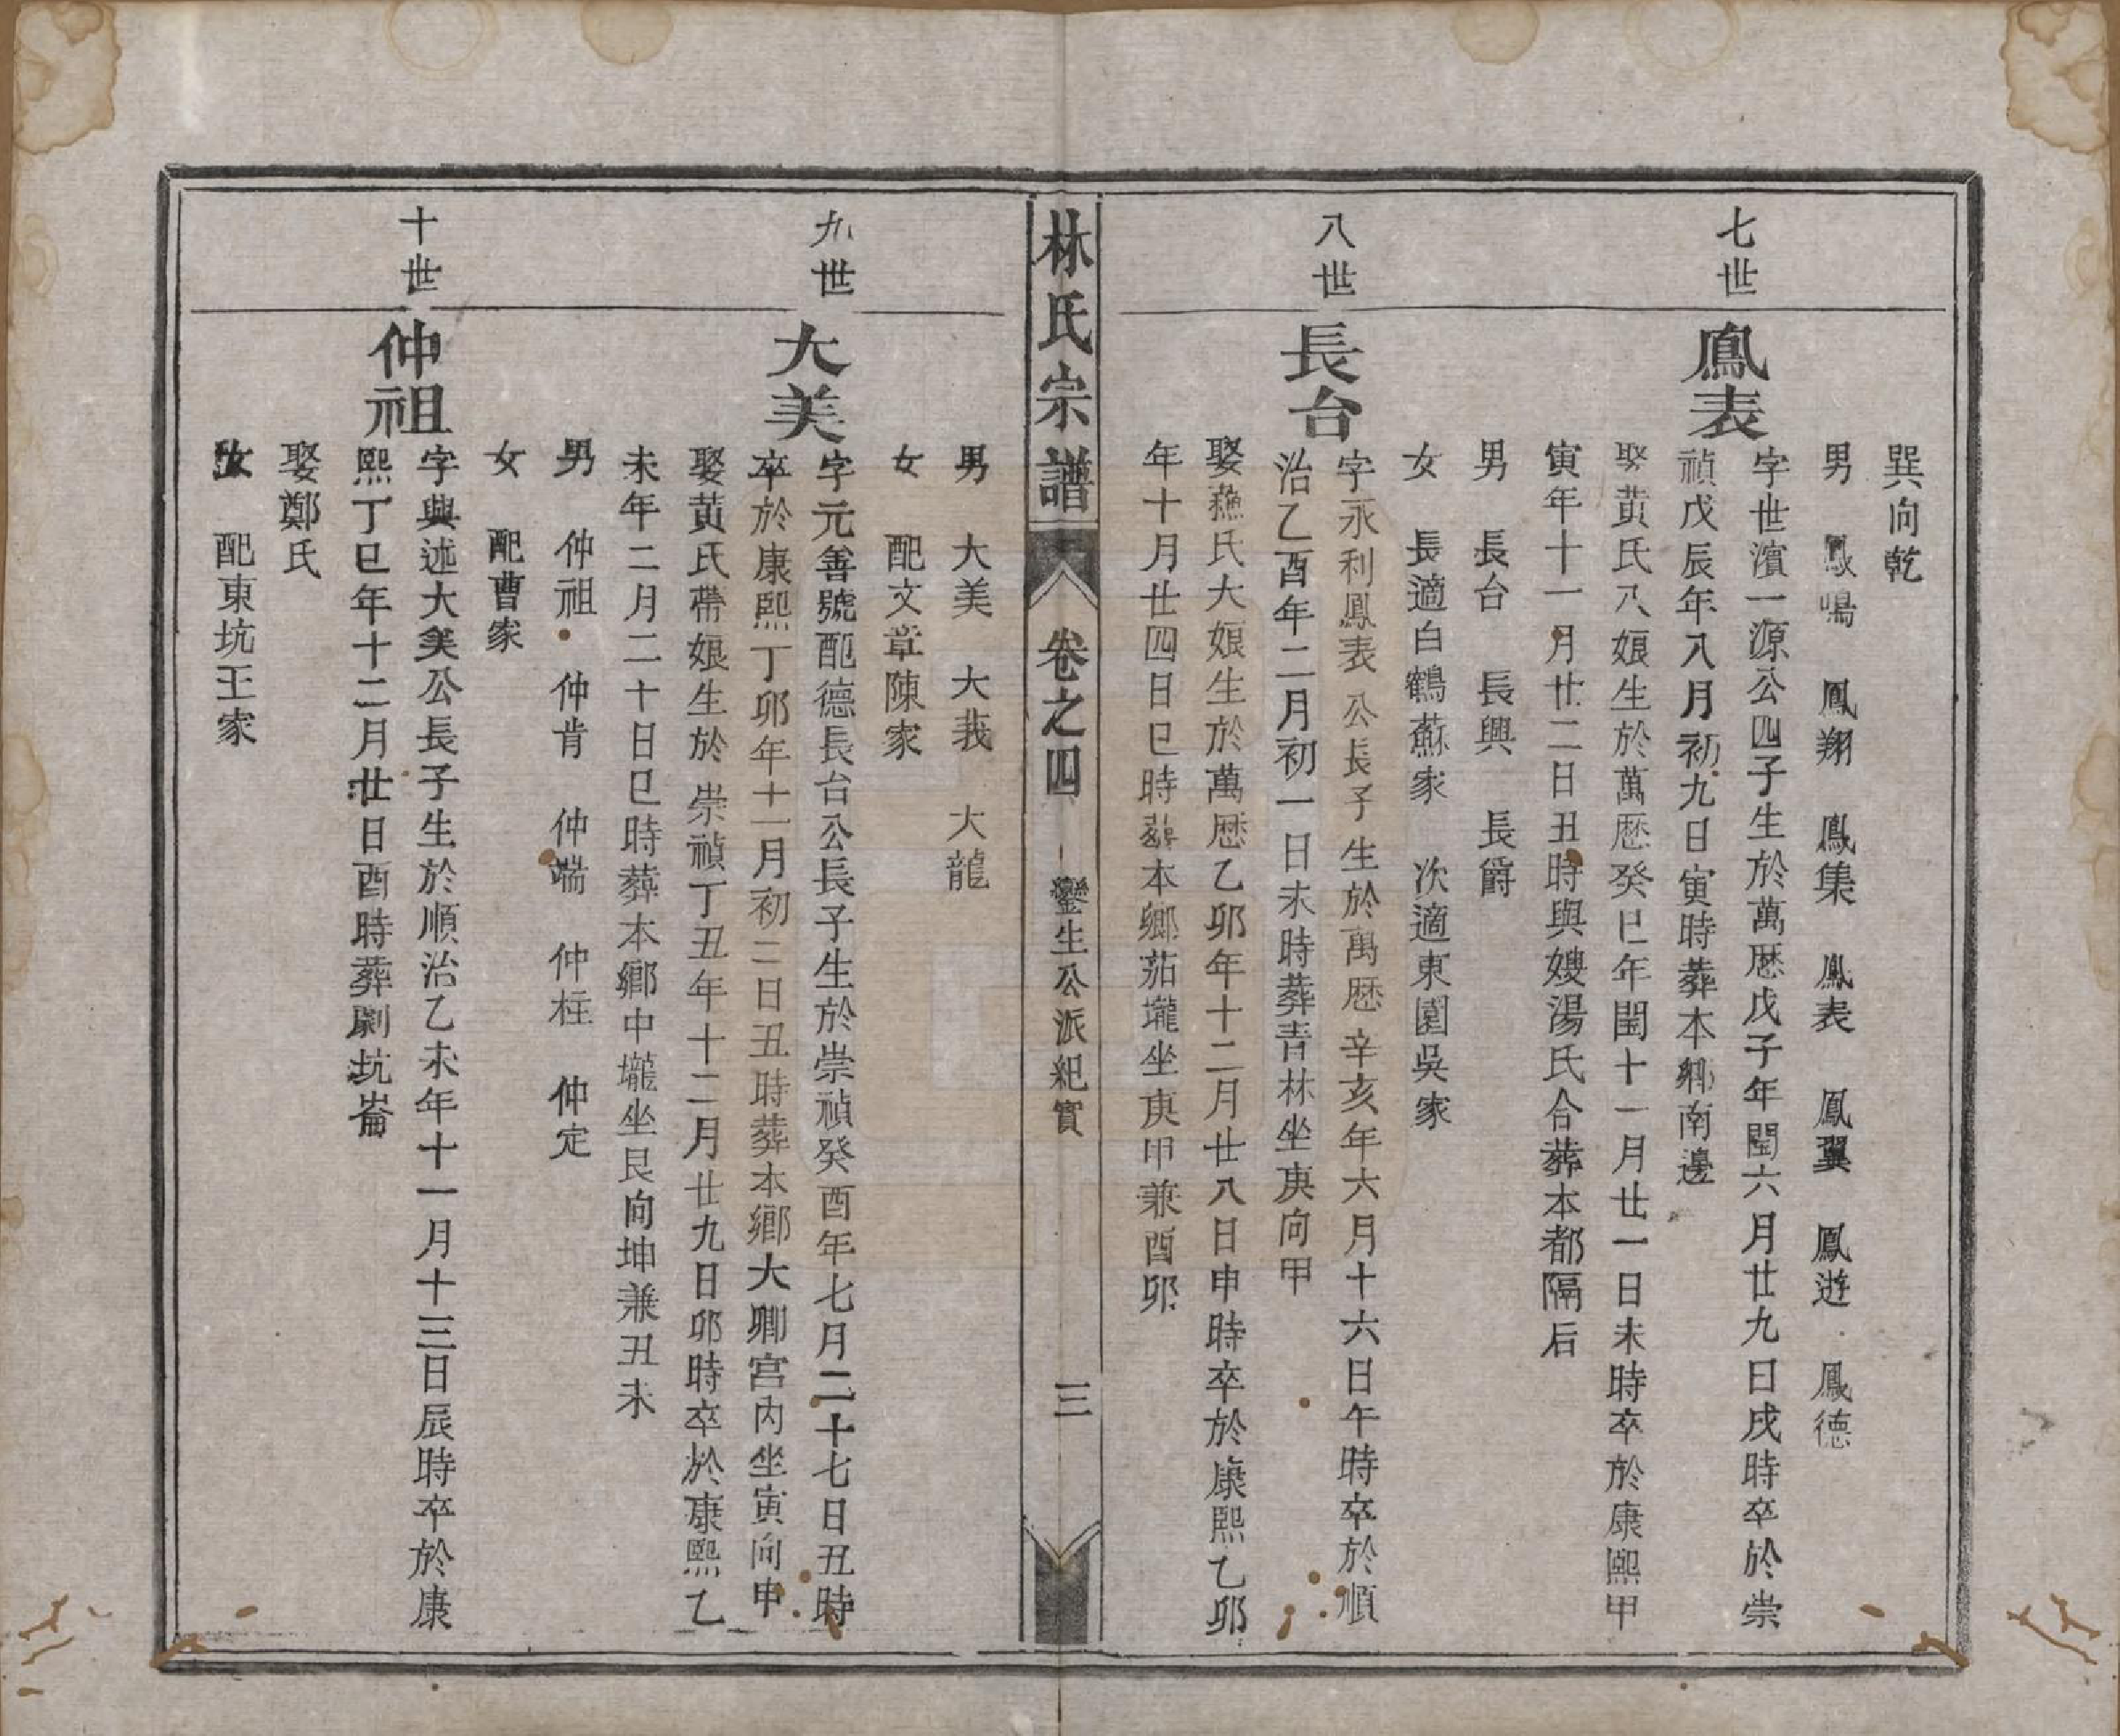 巽向乾
男 鳳鳴 鳳翔 鳳集 鳳表 鳳翼 鳳遊 鳳德
七世
鳳表
字世濱一源公四子生於萬歷戊子年閏六月廿九日戌時卒於崇
禎戊辰年八月初九日寅時葬本鄉南邊
娶黃氏八娘生於萬歷癸巳年閏十一月廿一日未時卒於康熙甲
寅年十一月廿二日丑時與嫂湯氏合葬本都隔后
男 長台 長興 長爵
女 長適白鶴蘇家 次適東園吳家
八世
長台
字永利鳳表公長子生於萬歷辛亥年六月十六日午時卒於順
治乙酉年二月初一日未時葬青林坐庚向甲
娶蘓氏大娘生於萬歷乙卯年十二月廿八日申時卒於康熙乙卯
年十月廿四日巳時葬本鄉茄壠坐庚甲兼酉卯
林氏宗譜 卷之四 鑾生公派紀實 三
男 大美 大我 大龍
女 配文章陳家
九世
大美
字元善號配德長台公長子生於崇禎癸酉年七月二十七日丑時
卒於康熙丁卯年十一月初二日丑時葬本鄉大卿宮內坐寅向申
娶黃氏帶娘生於崇禎丁丑年十二月廿九日卯時卒於康熙乙
未年二月二十日巳時葬本鄉中壠坐艮向坤兼丑未
男 仲祖 仲肯 仲端 仲柱 仲定
女 配曹家
十世
仲祖
字典述大美公長子生於順治乙未年十一月十三日辰時卒於康
熙丁巳年十二月廿日酉時葬劚坑崙
娶鄭氏
女 配東坑王家